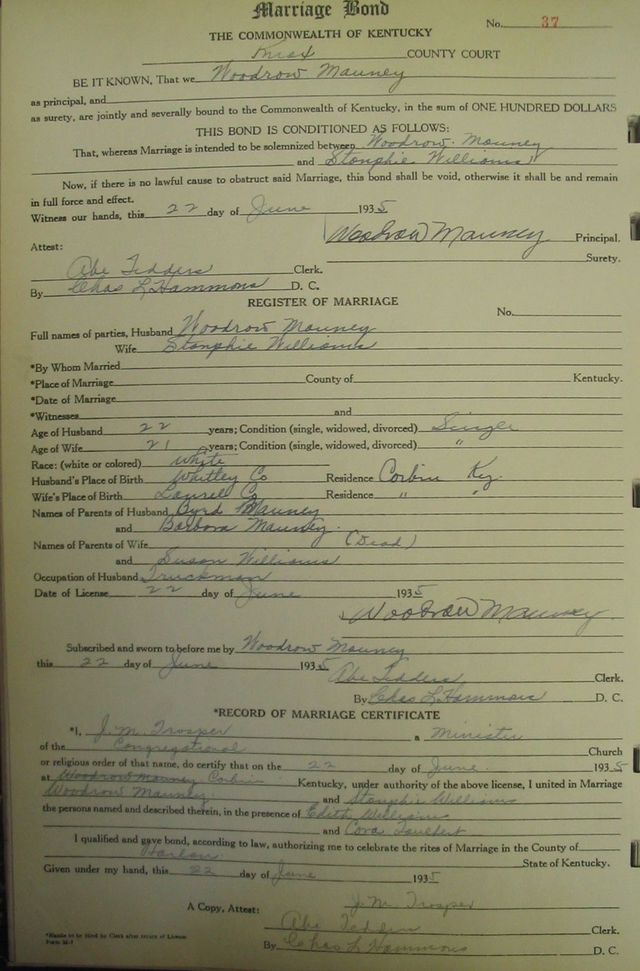 Marriage Bond
No. 37
THE COMMONWEALTH OF KENTUCKY
Knox COUNTY COURT
BE IT KNOWN, That we Woodrow Mauney
as principal, and
as surety, are jointly and severally bound to the Commonwealth of Kentucky, in the sum of ONE HUNDRED DOLLARS
THIS BOND IS CONDITIONED AS FOLLOWS:
That, whereas Marriage is intended to be solemnized between Woodrow Mauney
and Stonphie Williams
Now, if there is no lawful cause to obstruct said Marriage, this bond shall be void, otherwise it shall be and remain
in full force and effect.
Witness our hands, this 22 day of June 1935
Woodrow Mauney Principal.
Surety.
Attest:
Abe Tedders Clerk.
By Chas L Hammons D. C.
REGISTER OF MARRIAGE
No.
Full names of parties, Husband Woodrow Mauney
Wife Stonphie Williams
*By Whom Married
*Place of Marriage County of Kentucky.
*Date of Marriage
*Witnesses and
Age of Husband 22 years; Condition (single, widowed, divorced) Single
Age of Wife 21 years; Condition (single, widowed, divorced) "
Race: (white or colored) White
Husband's Place of Birth Whitley Co Residence Corbin Ky.
Wife's Place of Birth Laurel Co Residence " "
Names of Parents of Husband Byrd Mauney
and Barbora Mauney
Names of Parents of Wife (Dead)
and Susan Williams
Occupation of Husband Truckman
Date of License 22 day of June 1935
Woodrow Mauney
Subscribed and sworn to before me by Woodrow Mauney
this 22 day of June 1935
Abe Tedders Clerk.
By Chas L Hammons D. C.
*RECORD OF MARRIAGE CERTIFICATE
*I, J. M. Trosper a Minister
of the Congregational Church
or religious order of that name, do certify that on the 22 day of June 1935
at Woodrow Mauney Corbin Kentucky, under authority of the above license, I united in Marriage
Woodrow Mauney and Stonphi Williams
the persons named and described therein, in the presence of Edith Williams
and Cora
I qualified and gave bond, according to law, authorizing me to celebrate the rites of Marriage in the County of
Harlan State of Kentucky.
Given under my hand, this 22 day of June 1935
J. M. Trosper
A Copy, Attest:
Abe Tedders Clerk.
By Chas L Hammons D. C.
*Blanks to be filled by Clerk after return of License